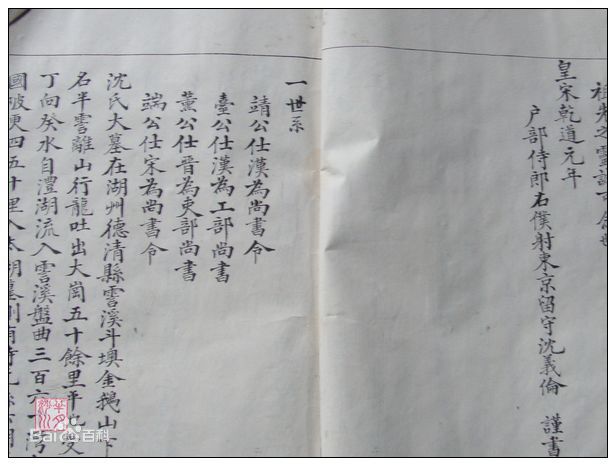 皇宋乾道元年
户部侍郎右僕射東京留守沈義倫 謹書
一世系
靖公仕漢為尚書令
臺公仕漢為工部尚書
薰公仕晉為吏部尚書
端公仕宋為尚書令
沈氏大墓在湖州德清縣雲溪斗墺金鵝山
名半雲離山行龍吐出大崗五十餘里平
丁向癸水自澧湖流入雲溪盤曲三百六
國波更四五十里入太湖墓
Bai百科